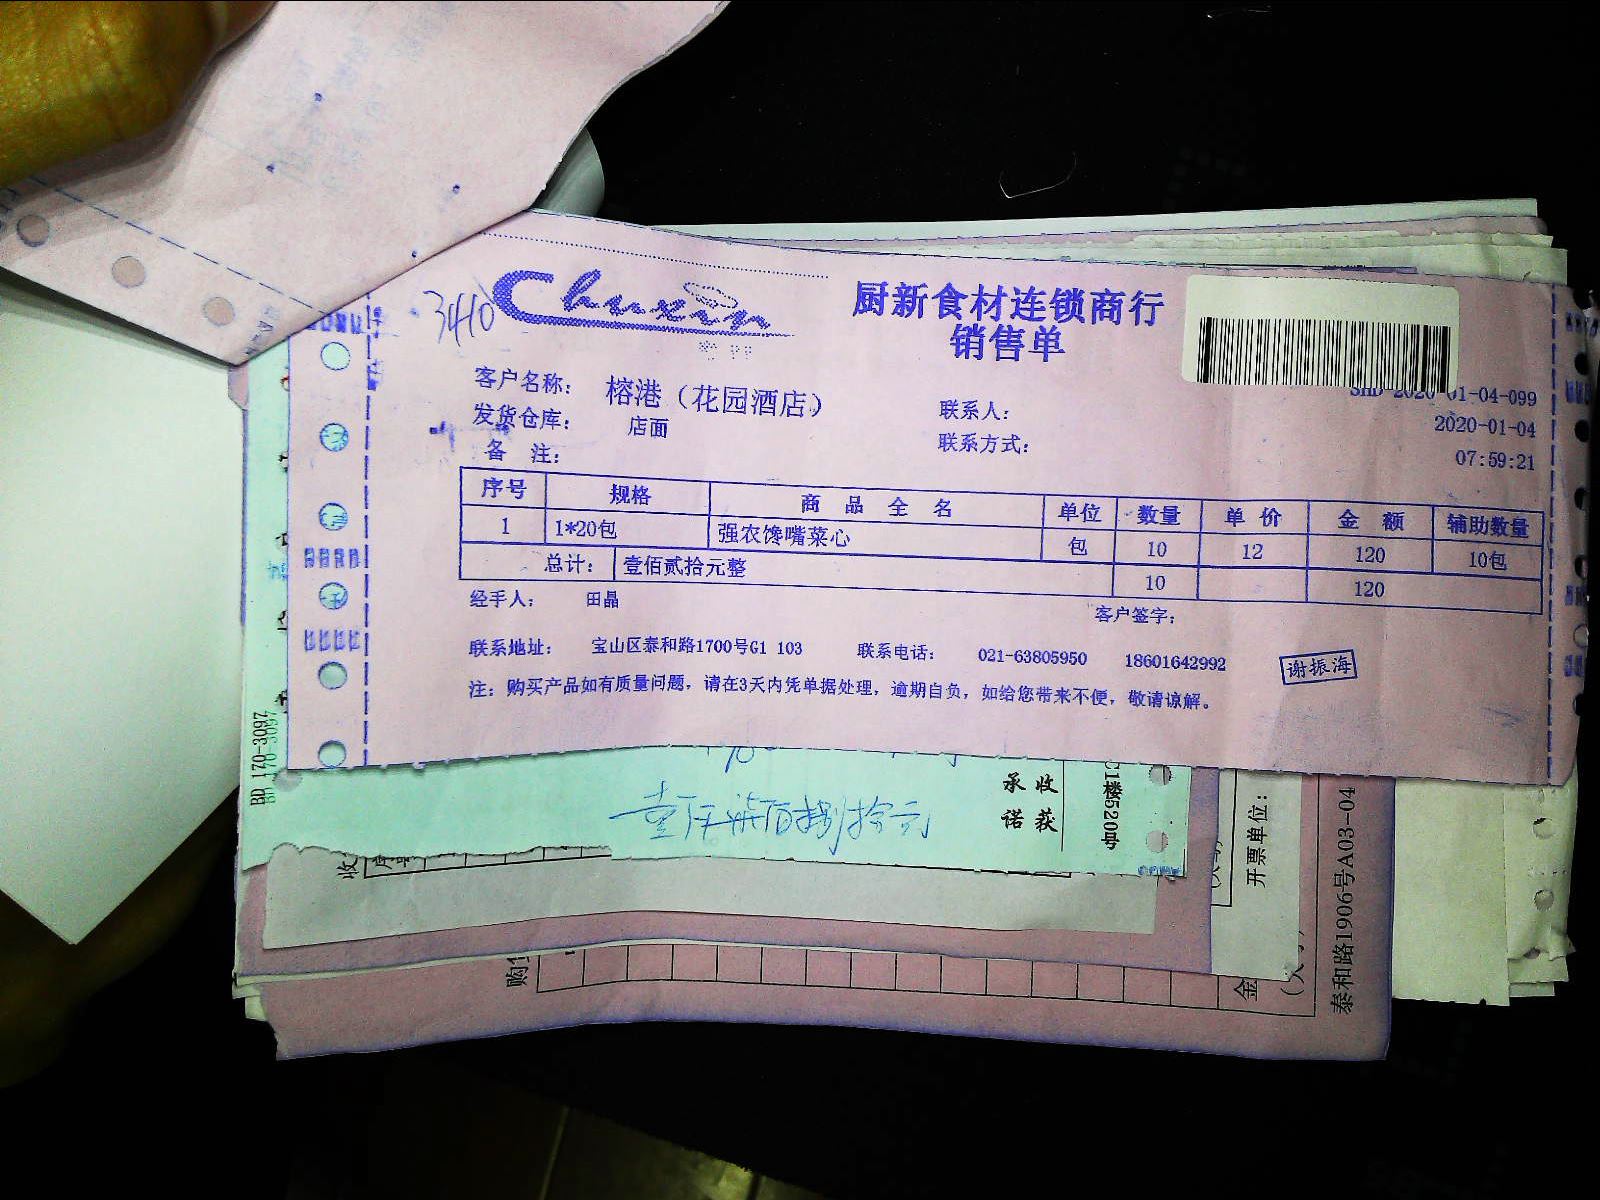 3410
Chuxin
厨新食材连锁商行
销售单
客户名称: 榕港（花园酒店） 联系人:
-01-04-099
发货仓库: 店面 联系方式:
2020-01-04
备 注:
07:59:21
序号 规格 商 品 全 名 单位 数量 单 价 金 额 辅助数量
1 1*20包 强农馋嘴菜心 包 10 12 120 10包
总计: 壹佰贰拾元整 10 120
经手人: 田晶 客户签字:
联系地址: 宝山区泰和路1700号G1 103 联系电话: 021-63805950 18601642992 谢振海
注: 购买产品如有质量问题, 请在3天内凭单据处理, 逾期自负, 如给您带来不便, 敬请谅解。
BD 170-3097
壹仟柒佰捌拾元
承诺
收获
C1楼520号
开票单位:
泰和路1906号A03-04
收
购
金